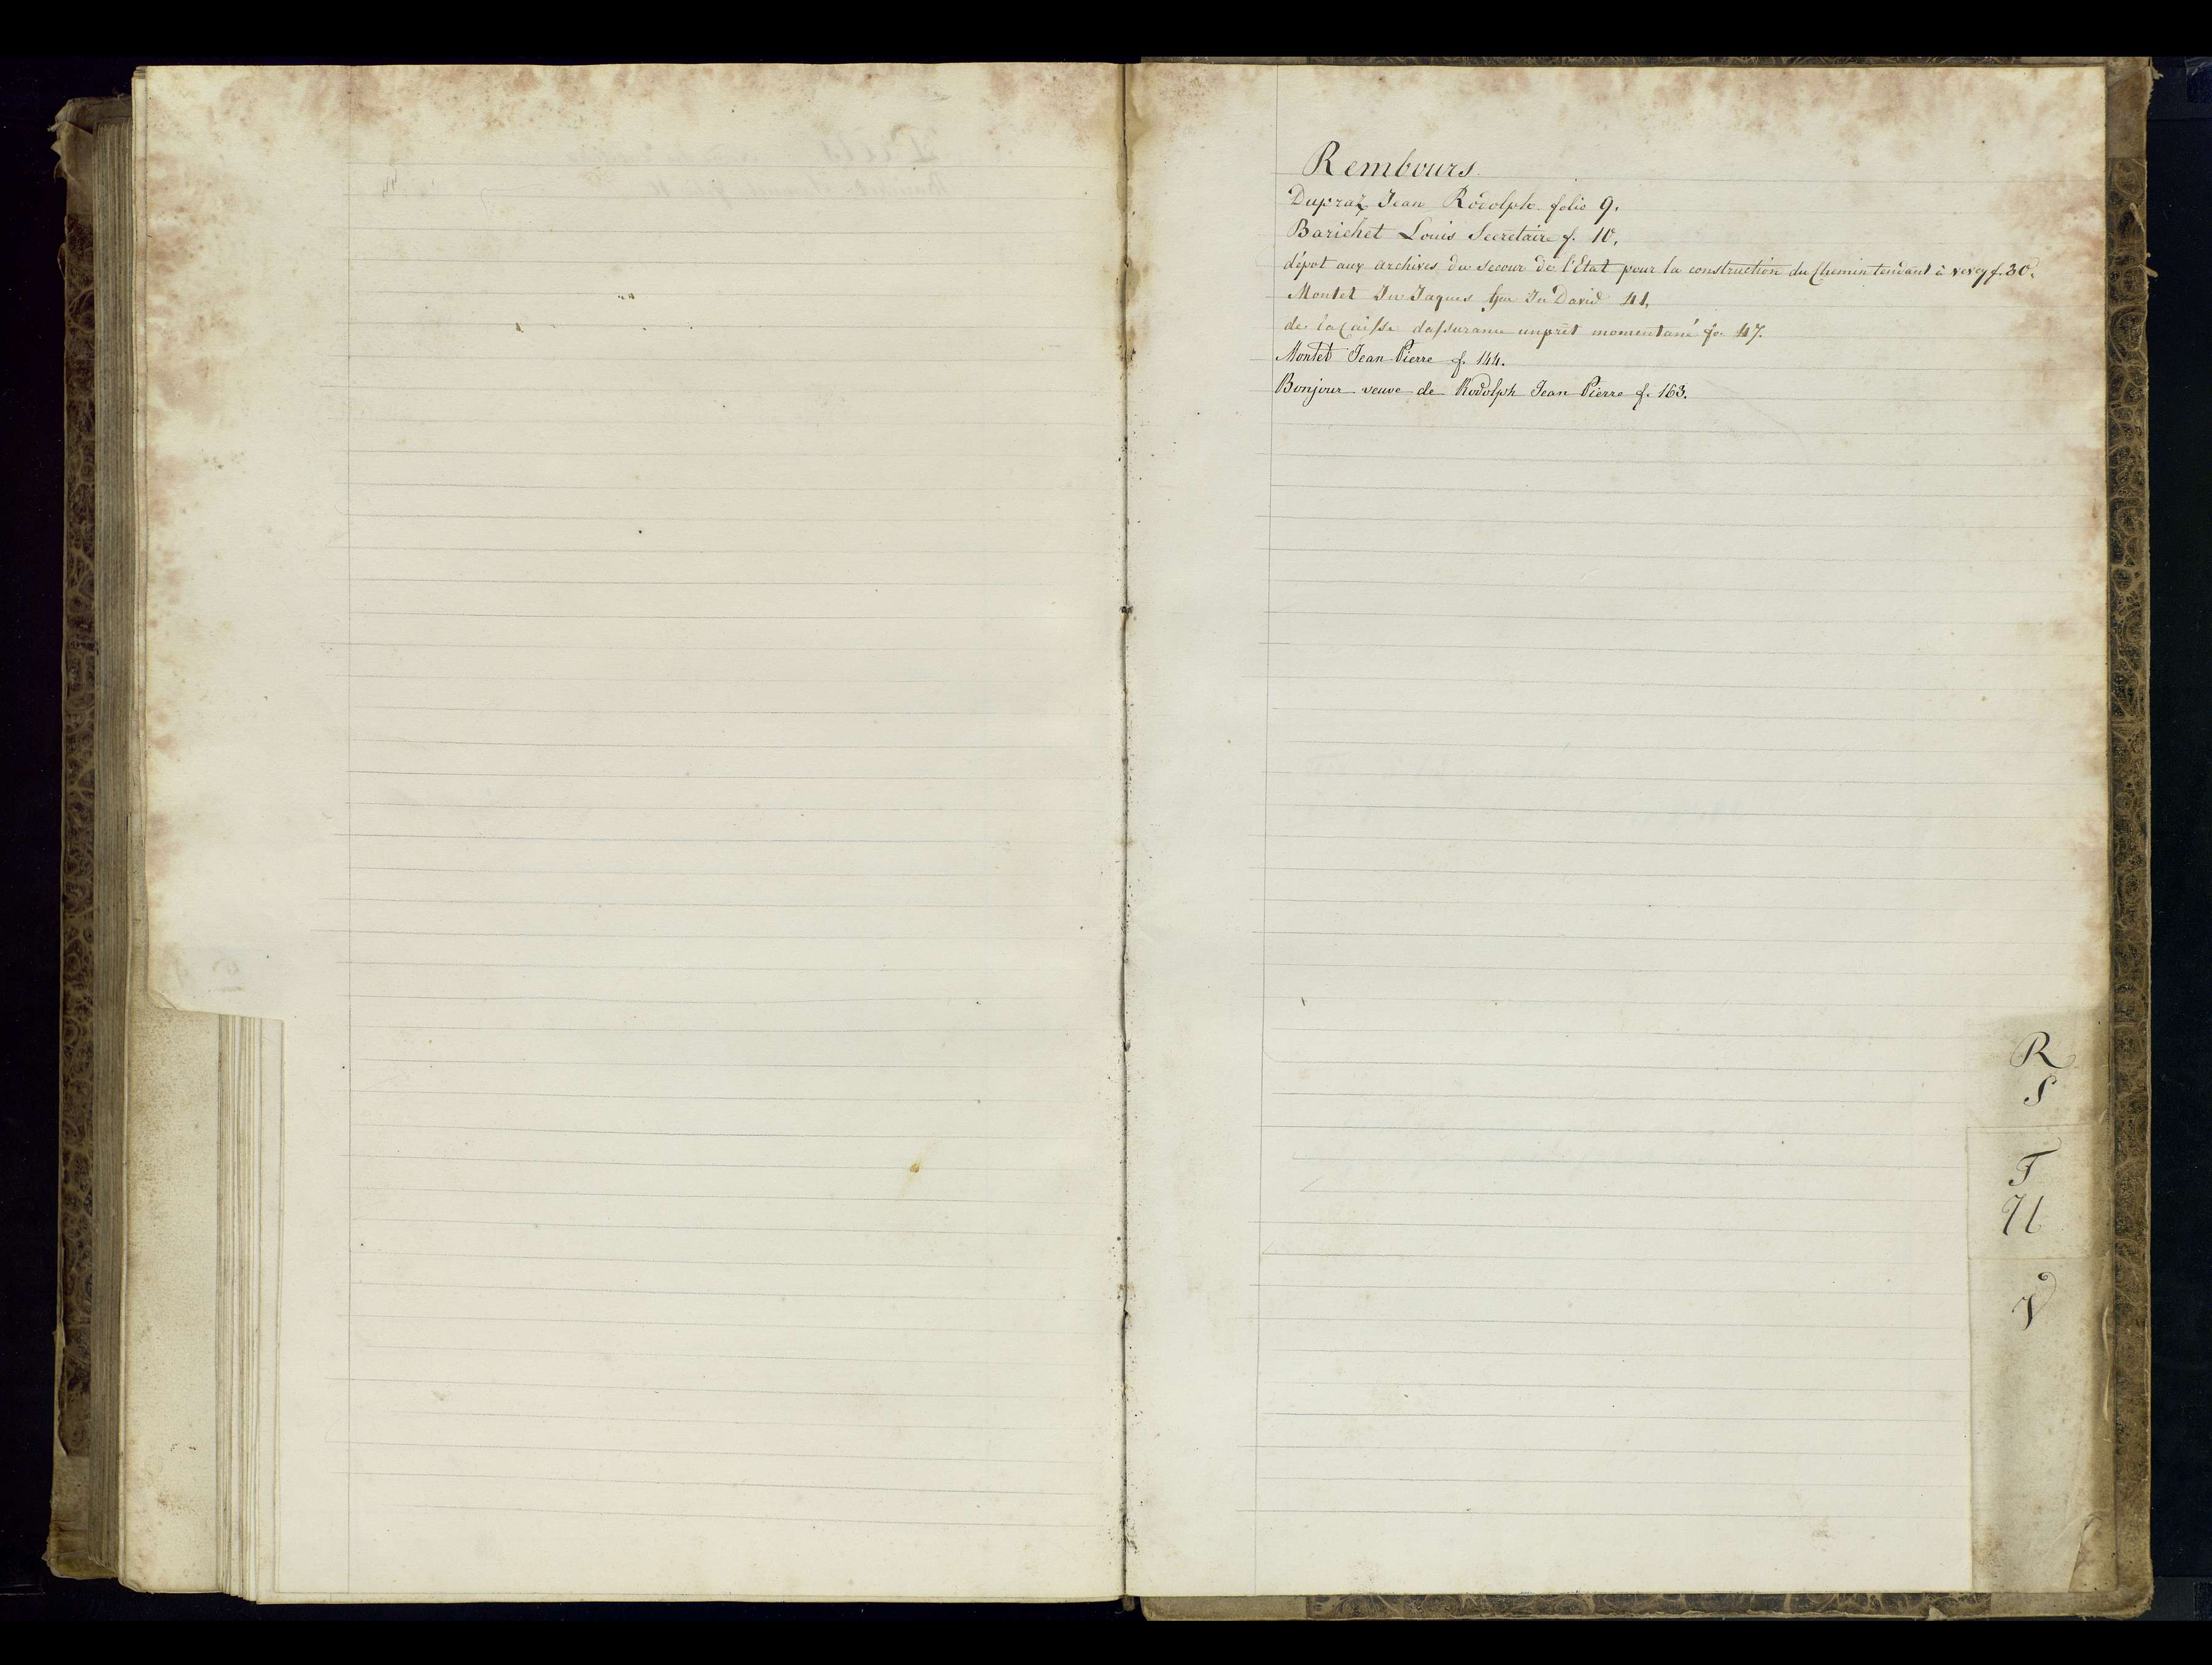 Rembours.
Dupraz Jean Rodolph. folio 9.
Barichet Louis Secretaire f. 10.
dépot aux archives du secour de l'Etat pour la construction du Chemin tendant à vevey f. 30.
Montet Jn Jaques feu Jn David 41.
de la Caisse dassurance unprêt momentané fo. 47.
Montet Jean Pierre f. 144.
Bonjour veuve de Rodolph Jean Pierre f. 163.
R
S
T
U
V